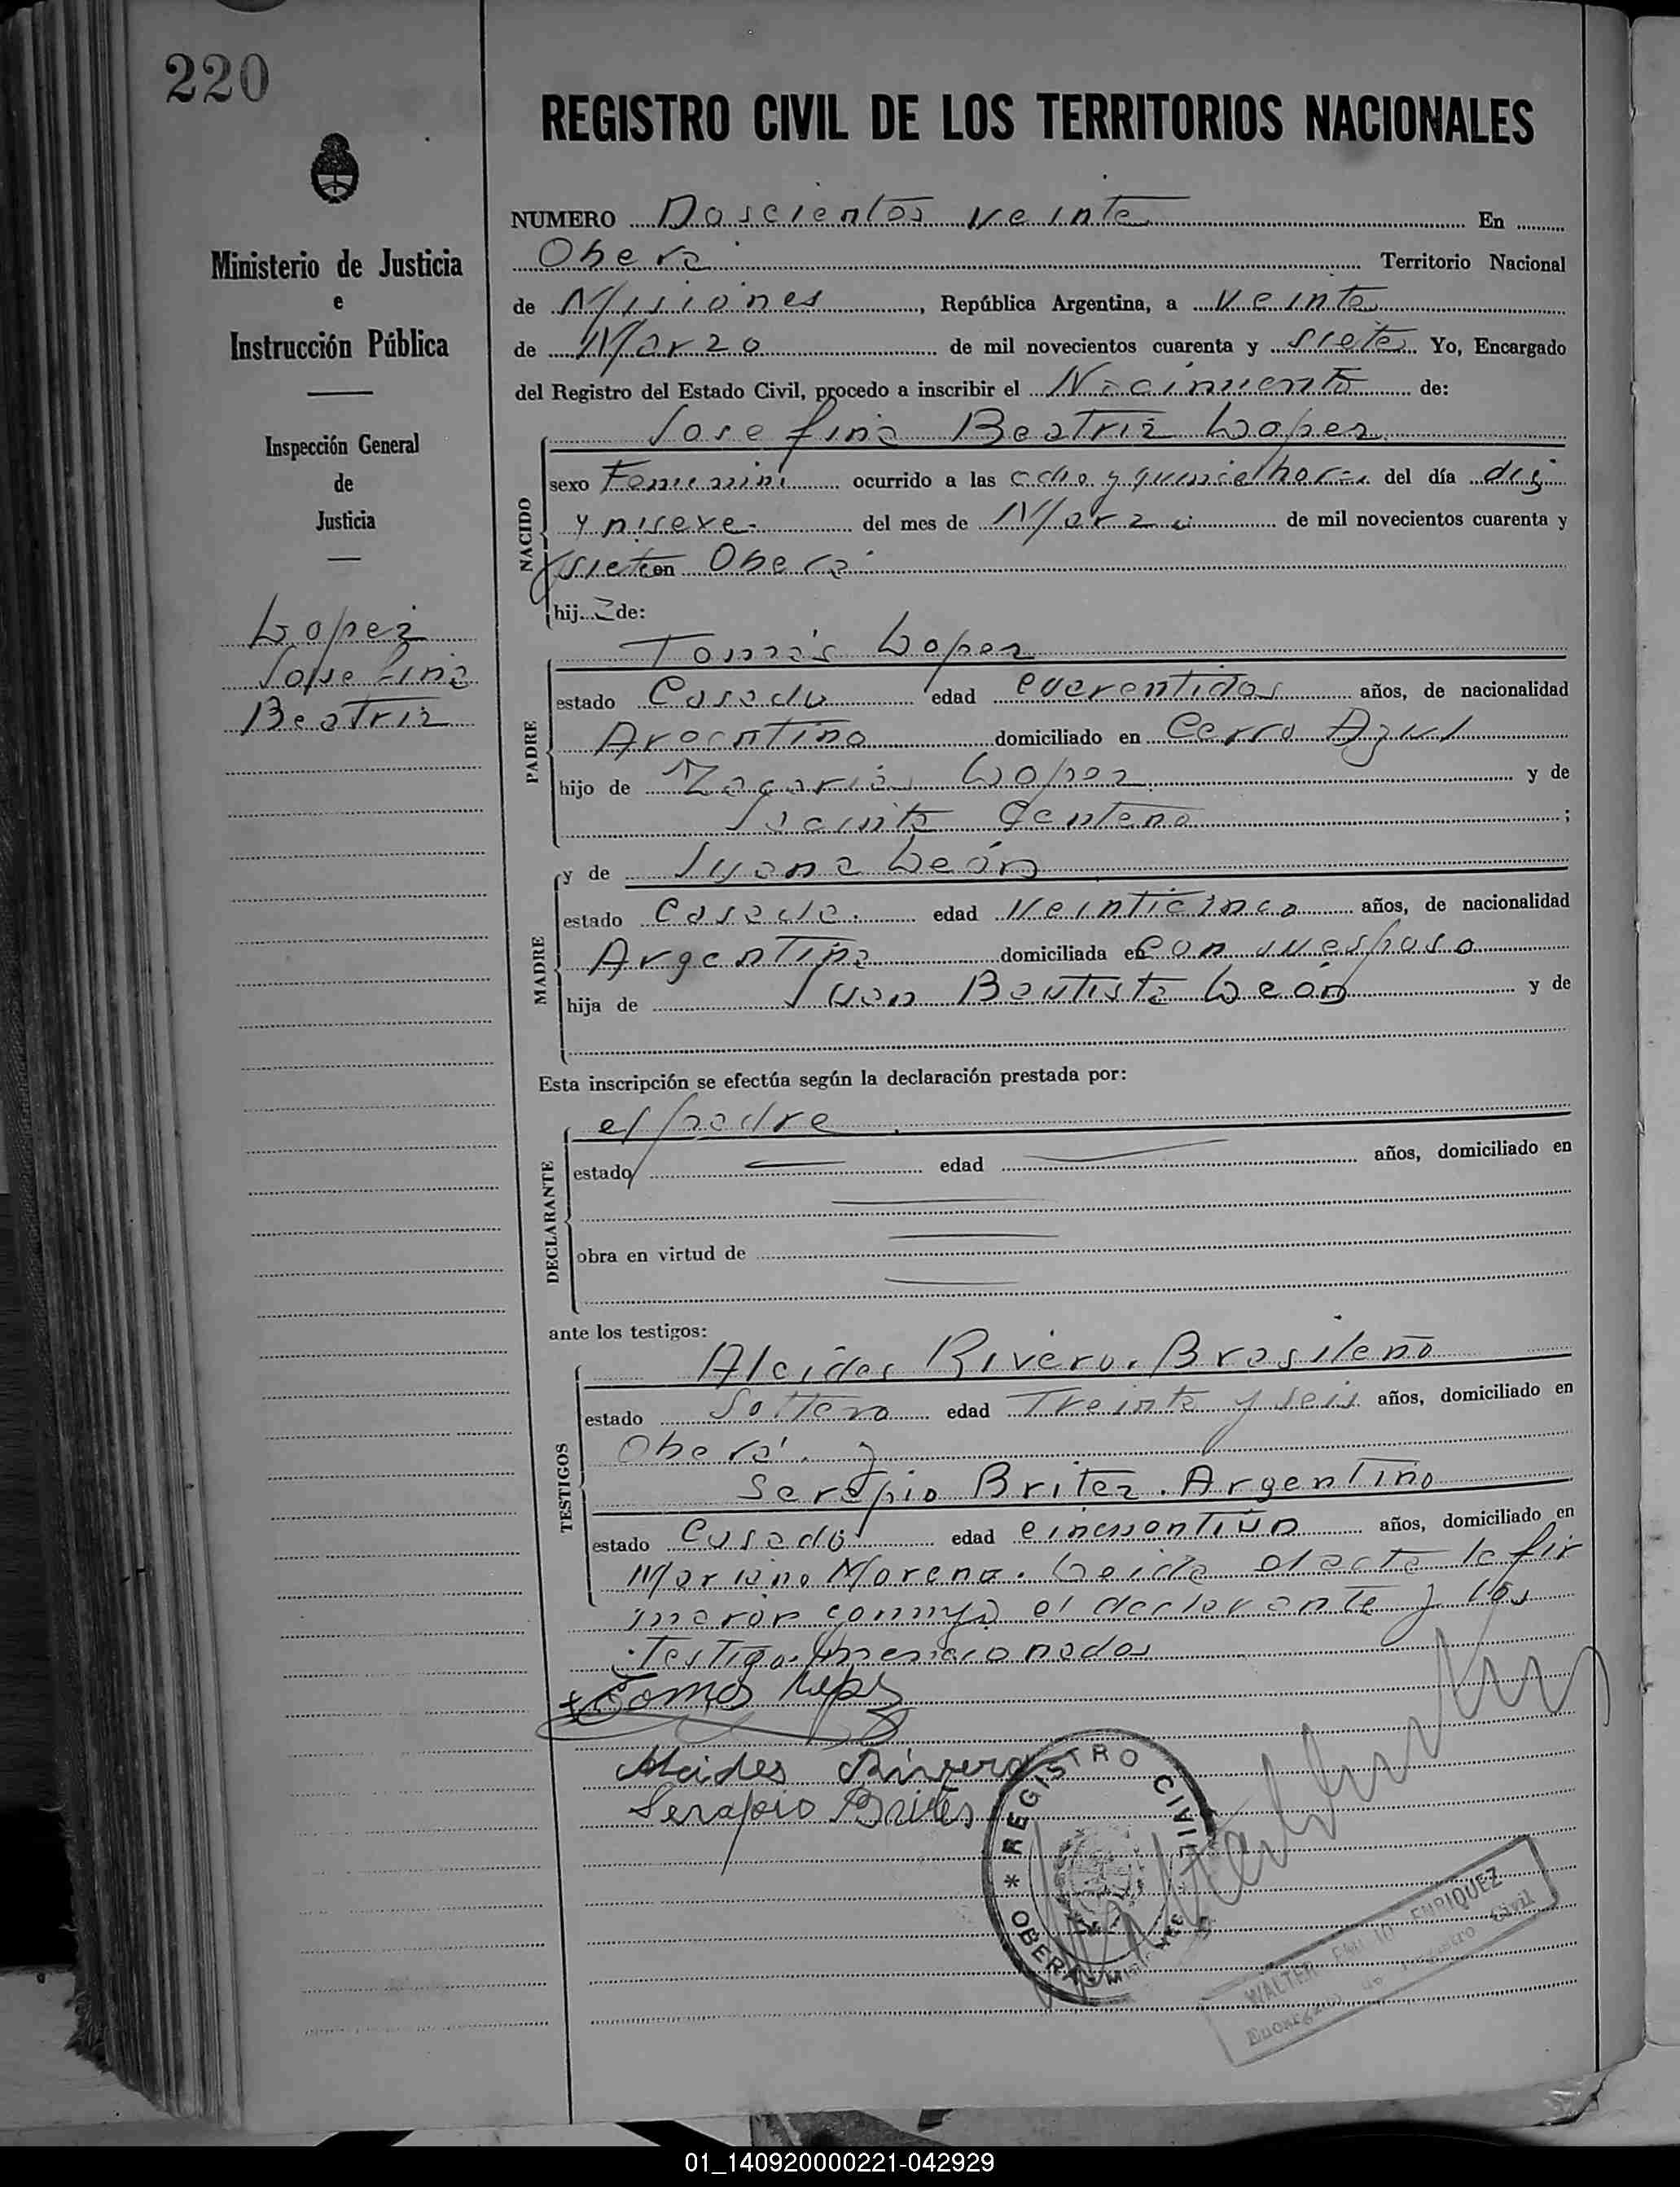 220
REGISTRO CIVIL DE LOS TERRITORIOS NACIONALES
Ministerio de Justicia
e
Instrucción Pública
Inspección General
de
Justicia
Lopez
Josefina
Beatriz
NUMERO Doscientos veinte En
Oberá Territorio Nacional
de Misiones, República Argentina, a veinte
de Marzo de mil novecientos cuarenta y siete Yo, Encargado
del Registro del Estado Civil, procedo a inscribir el Nacimiento de:
NACIDO
Josefina Beatriz Lopez
sexo Femenino ocurrido a las ocho y quince horas del día diez
y nueve del mes de Marzo de mil novecientos cuarenta y
siete en Oberá
hija de:
PADRE
Tomás Lopez
estado Casado edad cuarentidos años, de nacionalidad
Argentino domiciliado en Cerro Azul
hijo de Zacarías Lopez y de
Jacinta Centeno;
MADRE
y de Juana León
estado Casada. edad Veinticinco años, de nacionalidad
Argentina domiciliada en con su esposo
hija de Juan Bautista León y de
Esta inscripción se efectúa según la declaración prestada por:
DECLARANTE
el padre
estado edad años, domiciliado en
obra en virtud de
ante los testigos:
TESTIGOS
Alcides Rivero. Brasileño
estado Soltero edad Treinta y seis años, domiciliado en
Oberá. y
Serapio Britez. Argentino
estado Casado edad cincuentiún años, domiciliado en
Mariano Moreno. Leida el acta la fir
maron conmigo el declarante y los
Testigos mencionados
Tomas Lopez
Alcides Rivero
Serapio Brites
REGISTRO CIVIL
OBERA
WALTER EMILIO ENRIQUEZ
Encargado de Registro Civil
01_140920000221-042929